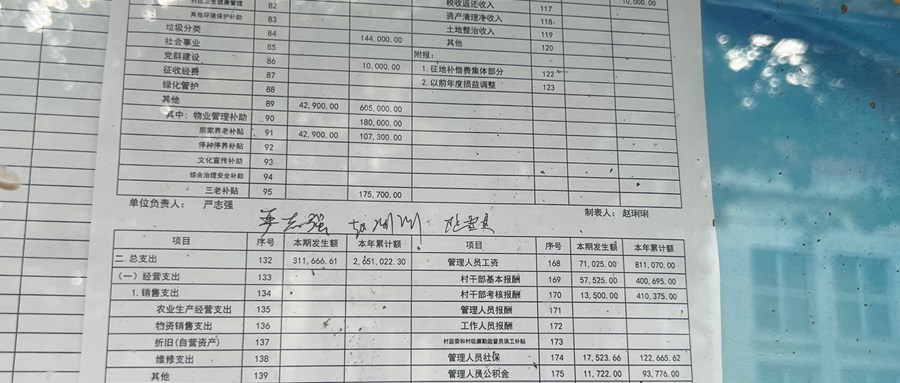 村庄卫生健康管理 82 税收返还收入 117 10,000.00
其他环境保护补助 83 资产清理净收入 118
垃圾分类 84 土地整治收入 119
社会事业 85 144,000.00 其他 120
党群建设 86 附报:
征收经费 87 10,000.00 1.征地补偿费集体部分 122
绿化管护 88 2.以前年度损益调整 123
其他 89 42,900.00 605,000.00
其中:物业管理补助 90 180,000.00
居家养老补贴 91 42,900.00 107,300.00
停种停养补贴 92
文化宣传补助 93
综合治理安全补助 94
三老补贴 95 175,700.00
单位负责人: 严志强 制表人:赵琍琍
项目 序号 本期发生额 本年累计额 项目 序号 本期发生额 本年累计额
二 总支出 132 311,666.61 2,651,022.30 管理人员工资 168 71,025.00 811,070.00
(一)经营支出 133 村干部基本报酬 169 57,525.00 400,695.00
1.销售支出 134 村干部考核报酬 170 13,500.00 410,375.00
农业生产经营支出 135 管理人员报酬 171
物资销售支出 136 工作人员报酬 172
折旧(自营资产) 137 村监委和村级廉勤监督员误工补贴 173
维修支出 138 管理人员社保 174 17,523.66 122,665.62
其他 139 管理人员公积金 175 11,722.00 93,776.00